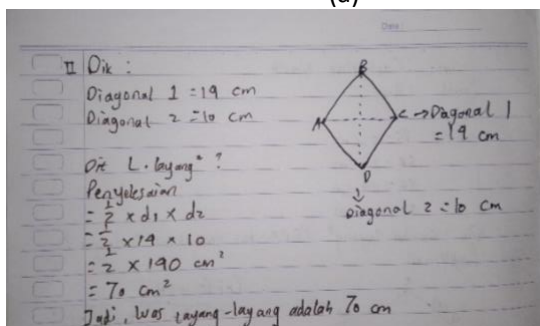 (d)
Date:
II Dik :
Diagonal 1 = 14 cm
Diagonal 2 = 10 cm
Dit L. layang² ?
Penyelesaian
= 1/2 x d1 x d2
= 1/2 x 14 x 10
= 1/2 x 140 cm²
= 70 cm²
Jadi, luas layang-layang adalah 70 cm
B
A
C → Diagonal 1
= 14 cm
D
↓
Diagonal 2 = 10 cm